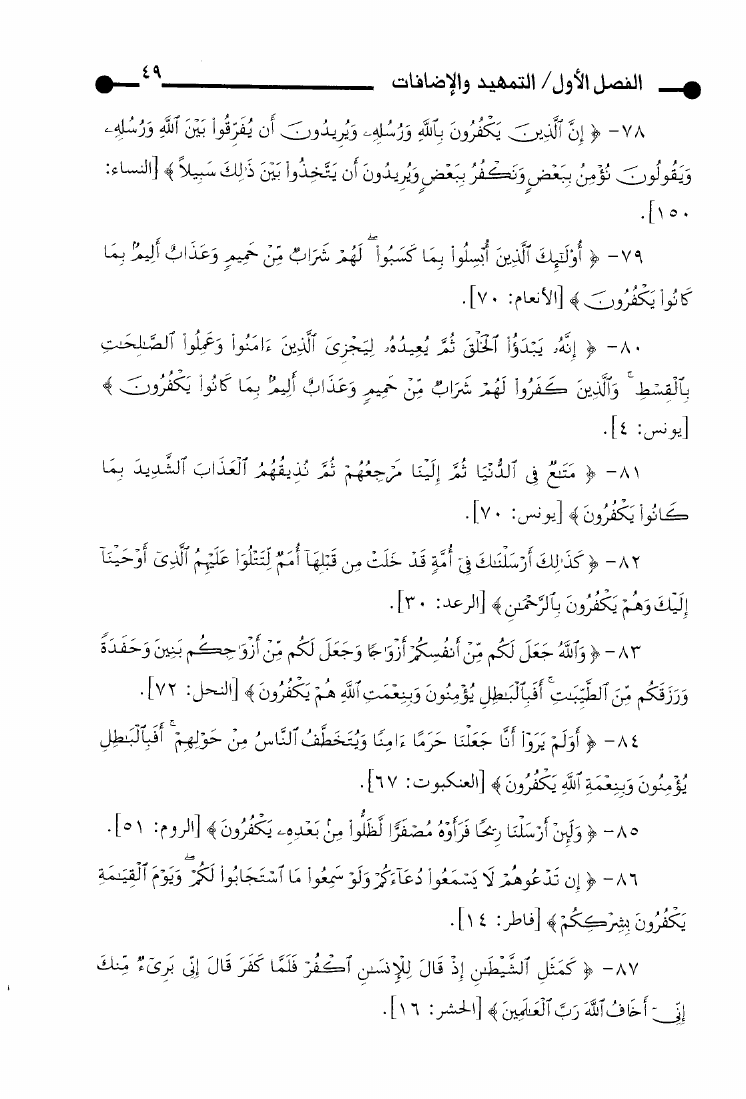 الفصل الأول/ التمهيد والإضافات ٤٩
٧٨- ﴿ إِنَّ ٱلَّذِينَ يَكْفُرُونَ بِٱللَّهِ وَرُسُلِهِۦ وَيُرِيدُونَ أَن يُفَرِّقُوا۟ بَيْنَ ٱللَّهِ وَرُسُلِهِۦ
وَيَقُولُونَ نُؤْمِنُ بِبَعْضٍ وَنَكْفُرُ بِبَعْضٍ وَيُرِيدُونَ أَن يَتَّخِذُوا۟ بَيْنَ ذَٰلِكَ سَبِيلاً ﴾ [النساء:
١٥٠].
٧٩- ﴿ أُو۟لَـٰٓئِكَ ٱلَّذِينَ أُبْسِلُوا۟ بِمَا كَسَبُوا۟ ۖ لَهُمْ شَرَابٌ مِّنْ حَمِيمٍ وَعَذَابٌ أَلِيمٌۢ بِمَا
كَانُوا۟ يَكْفُرُونَ ﴾ [الأنعام: ٧٠].
٨٠- ﴿ إِنَّهُۥ يَبْدَؤُا۟ ٱلْخَلْقَ ثُمَّ يُعِيدُهُۥ لِيَجْزِىَ ٱلَّذِينَ ءَامَنُوا۟ وَعَمِلُوا۟ ٱلصَّـٰلِحَـٰتِ
بِٱلْقِسْطِ ۚ وَٱلَّذِينَ كَفَرُوا۟ لَهُمْ شَرَابٌ مِّنْ حَمِيمٍ وَعَذَابٌ أَلِيمٌۢ بِمَا كَانُوا۟ يَكْفُرُونَ ﴾
[يونس: ٤].
٨١- ﴿ مَتَـٰعٌ فِى ٱلدُّنْيَا ثُمَّ إِلَيْنَا مَرْجِعُهُمْ ثُمَّ نُذِيقُهُمُ ٱلْعَذَابَ ٱلشَّدِيدَ بِمَا
كَانُوا۟ يَكْفُرُونَ ﴾ [يونس: ٧٠].
٨٢- ﴿ كَذَٰلِكَ أَرْسَلْنَـٰكَ فِىٓ أُمَّةٍ قَدْ خَلَتْ مِن قَبْلِهَآ أُمَمٌ لِّتَتْلُوَا۟ عَلَيْهِمُ ٱلَّذِىٓ أَوْحَيْنَآ
إِلَيْكَ وَهُمْ يَكْفُرُونَ بِٱلرَّحْمَـٰنِ ﴾ [الرعد: ٣٠].
٨٣- ﴿ وَٱللَّهُ جَعَلَ لَكُم مِّنْ أَنفُسِكُمْ أَزْوَٰجًا وَجَعَلَ لَكُم مِّنْ أَزْوَٰجِكُم بَنِينَ وَحَفَدَةً
وَرَزَقَكُم مِّنَ ٱلطَّيِّبَـٰتِ ۚ أَفَبِٱلْبَـٰطِلِ يُؤْمِنُونَ وَبِنِعْمَتِ ٱللَّهِ هُمْ يَكْفُرُونَ ﴾ [النحل: ٧٢].
٨٤- ﴿ أَوَلَمْ يَرَوْا۟ أَنَّا جَعَلْنَا حَرَمًا ءَامِنًا وَيُتَخَطَّفُ ٱلنَّاسُ مِنْ حَوْلِهِمْ ۚ أَفَبِٱلْبَـٰطِلِ
يُؤْمِنُونَ وَبِنِعْمَةِ ٱللَّهِ يَكْفُرُونَ ﴾ [العنكبوت: ٦٧].
٨٥- ﴿ وَلَئِنْ أَرْسَلْنَا رِيحًا فَرَأَوْهُ مُصْفَرًّا لَّظَلُّوا۟ مِنۢ بَعْدِهِۦ يَكْفُرُونَ ﴾ [الروم: ٥١].
٨٦- ﴿ إِن تَدْعُوهُمْ لَا يَسْمَعُوا۟ دُعَآءَكُمْ وَلَوْ سَمِعُوا۟ مَا ٱسْتَجَابُوا۟ لَكُمْ ۖ وَيَوْمَ ٱلْقِيَـٰمَةِ
يَكْفُرُونَ بِشِرْكِكُمْ ﴾ [فاطر: ١٤].
٨٧- ﴿ كَمَثَلِ ٱلشَّيْطَـٰنِ إِذْ قَالَ لِلْإِنسَـٰنِ ٱكْفُرْ فَلَمَّا كَفَرَ قَالَ إِنِّى بَرِىٓءٌ مِّنكَ
إِنِّىٓ أَخَافُ ٱللَّهَ رَبَّ ٱلْعَـٰلَمِينَ ﴾ [الحشر: ١٦].